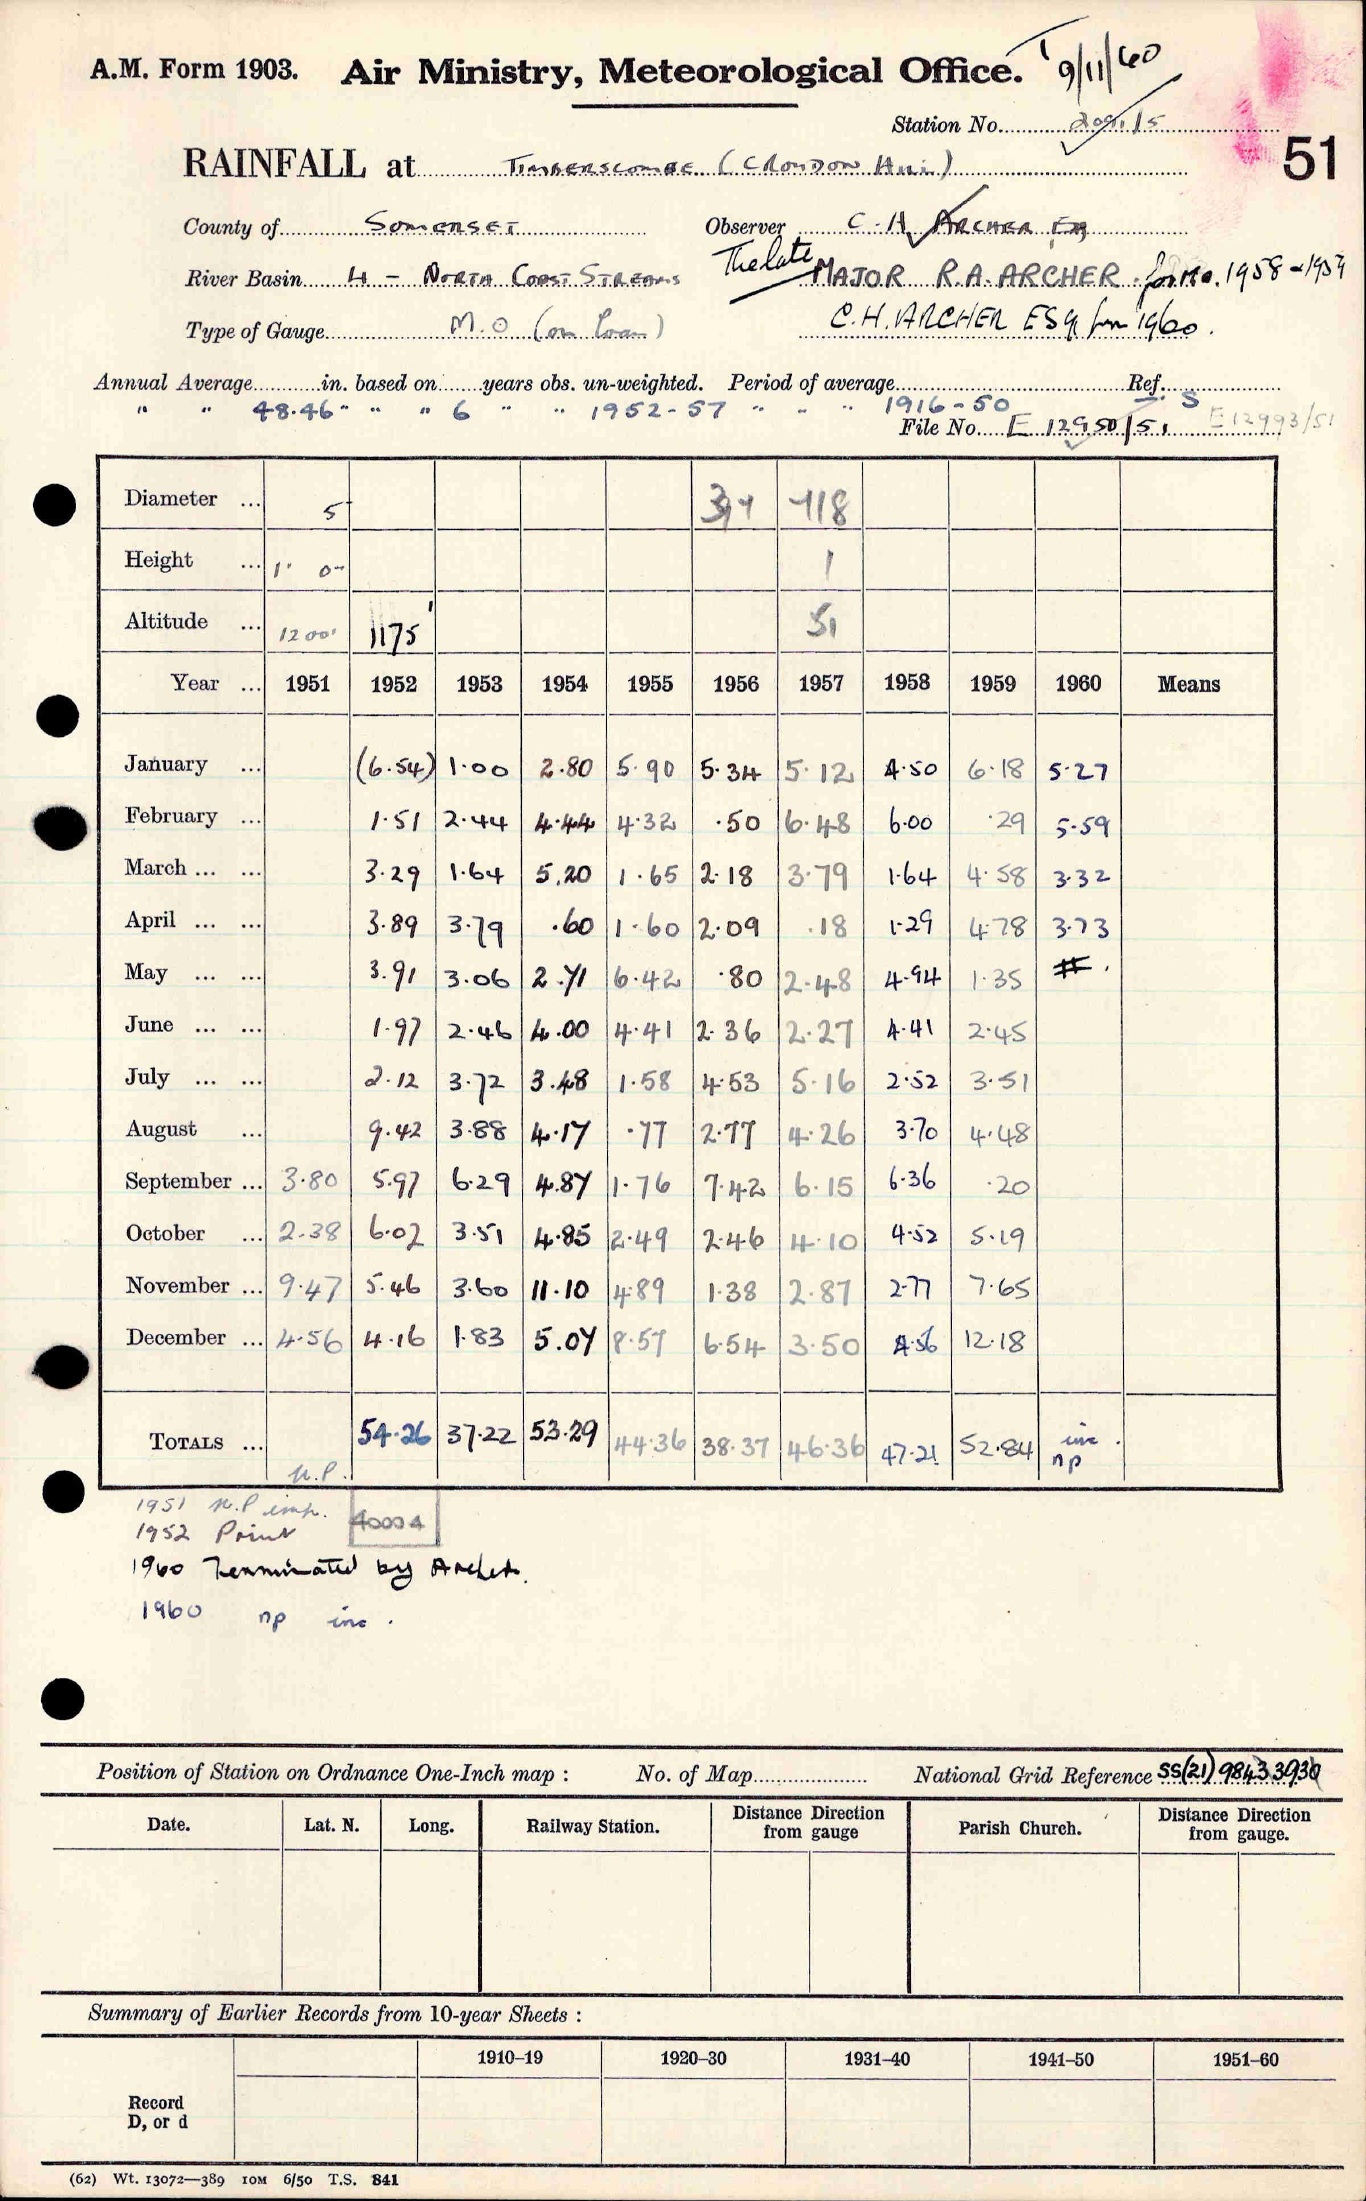 A.M. Form 1903. Air Ministry, Meteorological Office. 9/11/60
Station No. 2091/5
51
RAINFALL at TIMBERSCOMBE (CROYDON HILL)
County of SOMERSET Observer C.H. ARCHER Esq
River Basin 4 – NORTH COAST STREAMS The late MAJOR R.A. ARCHER for 1958 - 1959
Type of Gauge M.O (on loan) C.H. ARCHER ESq from 1960.
Annual Average in. based on years obs. un-weighted. Period of average Ref. S
" " 48.46 " " " 6 " " 1952-57 " " " 1916-50
File No. E 12950/51 E 12993/51
Diameter ... 5 718
Height ... 1' 0" 1
Altitude ... 1200' 1175' 51
Year ... 1951 1952 1953 1954 1955 1956 1957 1958 1959 1960 Means
January ... (6.54) 1.00 2.80 5.90 5.34 5.12 4.50 6.18 5.27
February ... 1.51 2.44 4.44 4.32 .50 6.48 6.00 .29 5.59
March ... ... 3.29 1.64 5.20 1.65 2.18 3.79 1.64 4.58 3.32
April ... ... 3.89 3.79 .60 1.60 2.09 .18 1.29 4.78 3.73
May ... ... 3.91 3.06 2.71 6.42 .80 2.48 4.94 1.35
June ... ... 1.97 2.46 4.00 4.41 2.36 2.27 4.41 2.45
July ... ... 2.12 3.72 3.48 1.58 4.53 5.16 2.52 3.51
August ... 9.42 3.88 4.17 .77 2.77 4.26 3.70 4.48
September ... 3.80 5.97 6.29 4.87 1.76 7.42 6.15 6.36 .20
October ... 2.38 6.02 3.51 4.85 2.49 2.46 4.10 4.52 5.19
November ... 9.47 5.46 3.60 11.10 4.89 1.38 2.87 2.77 7.65
December ... 4.56 4.16 1.83 5.07 8.57 6.54 3.50 4.56 12.18
TOTALS ... n.P. 54.26 37.22 53.29 44.36 38.37 46.36 47.21 52.84 inc. np
1951 n.P imp.
1952 Print 4000A
1960 Terminated by Archer.
1960 np inc.
Position of Station on Ordnance One-Inch map : No. of Map National Grid Reference SS(21) 9843 3930
Date. Lat. N. Long. Railway Station. Distance Direction from gauge Parish Church. Distance Direction from gauge.
Summary of Earlier Records from 10-year Sheets :
1910–19 1920–30 1931–40 1941–50 1951–60
Record
D, or d
(62) Wt. 13072—389 10M 6/50 T.S. 841